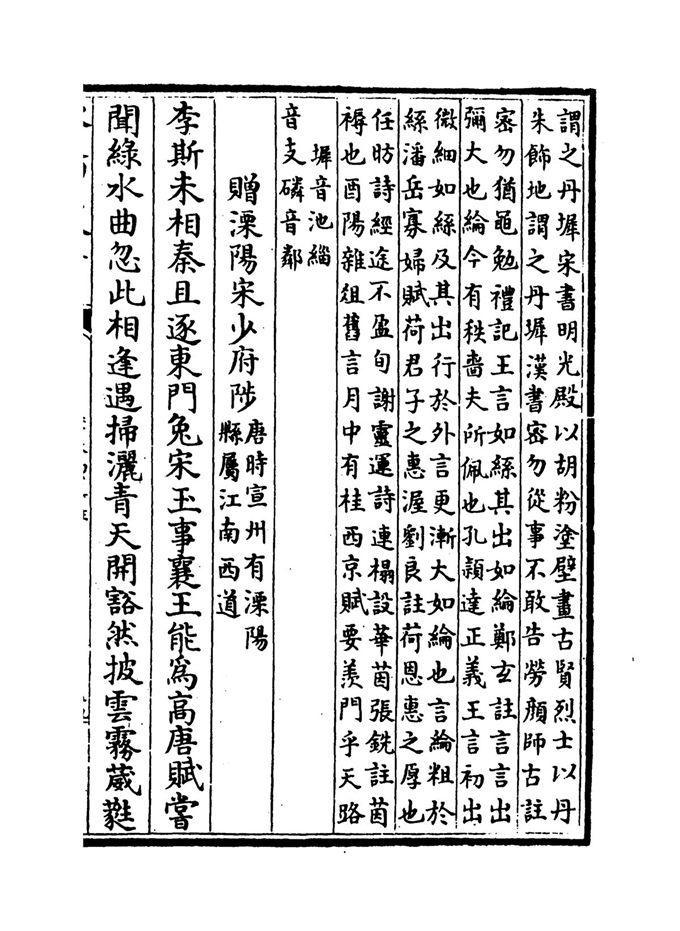 謂之丹墀宋書明光殿以胡粉塗壁畫古賢烈士以丹
朱飾地謂之丹墀漢書宻勿從事不敢告勞顔師古註
宻勿猶黽勉禮記王言如絲其出如綸鄭𤣥註言言出
彌大也綸今有秩嗇夫所佩也孔穎達正義王言初出
微細如絲及其出行於外言更漸大如綸也言綸粗於
絲潘岳寡婦賦荷君子之惠渥劉良註荷恩惠之厚也
任昉詩經途不盈旬謝靈運詩連榻設華茵張銑註茵
褥也酉陽雜俎舊言月中有桂西京賦要羨門乎天路
墀音池緇
音支磷音鄰
贈溧陽宋少府陟
唐時宣州有溧陽
縣屬江南西道
李斯未相秦且逐東門兔宋玉事襄王能為高唐賦嘗
聞綠水曲忽此相逢遇掃灑青天開豁然披雲霧葳蕤